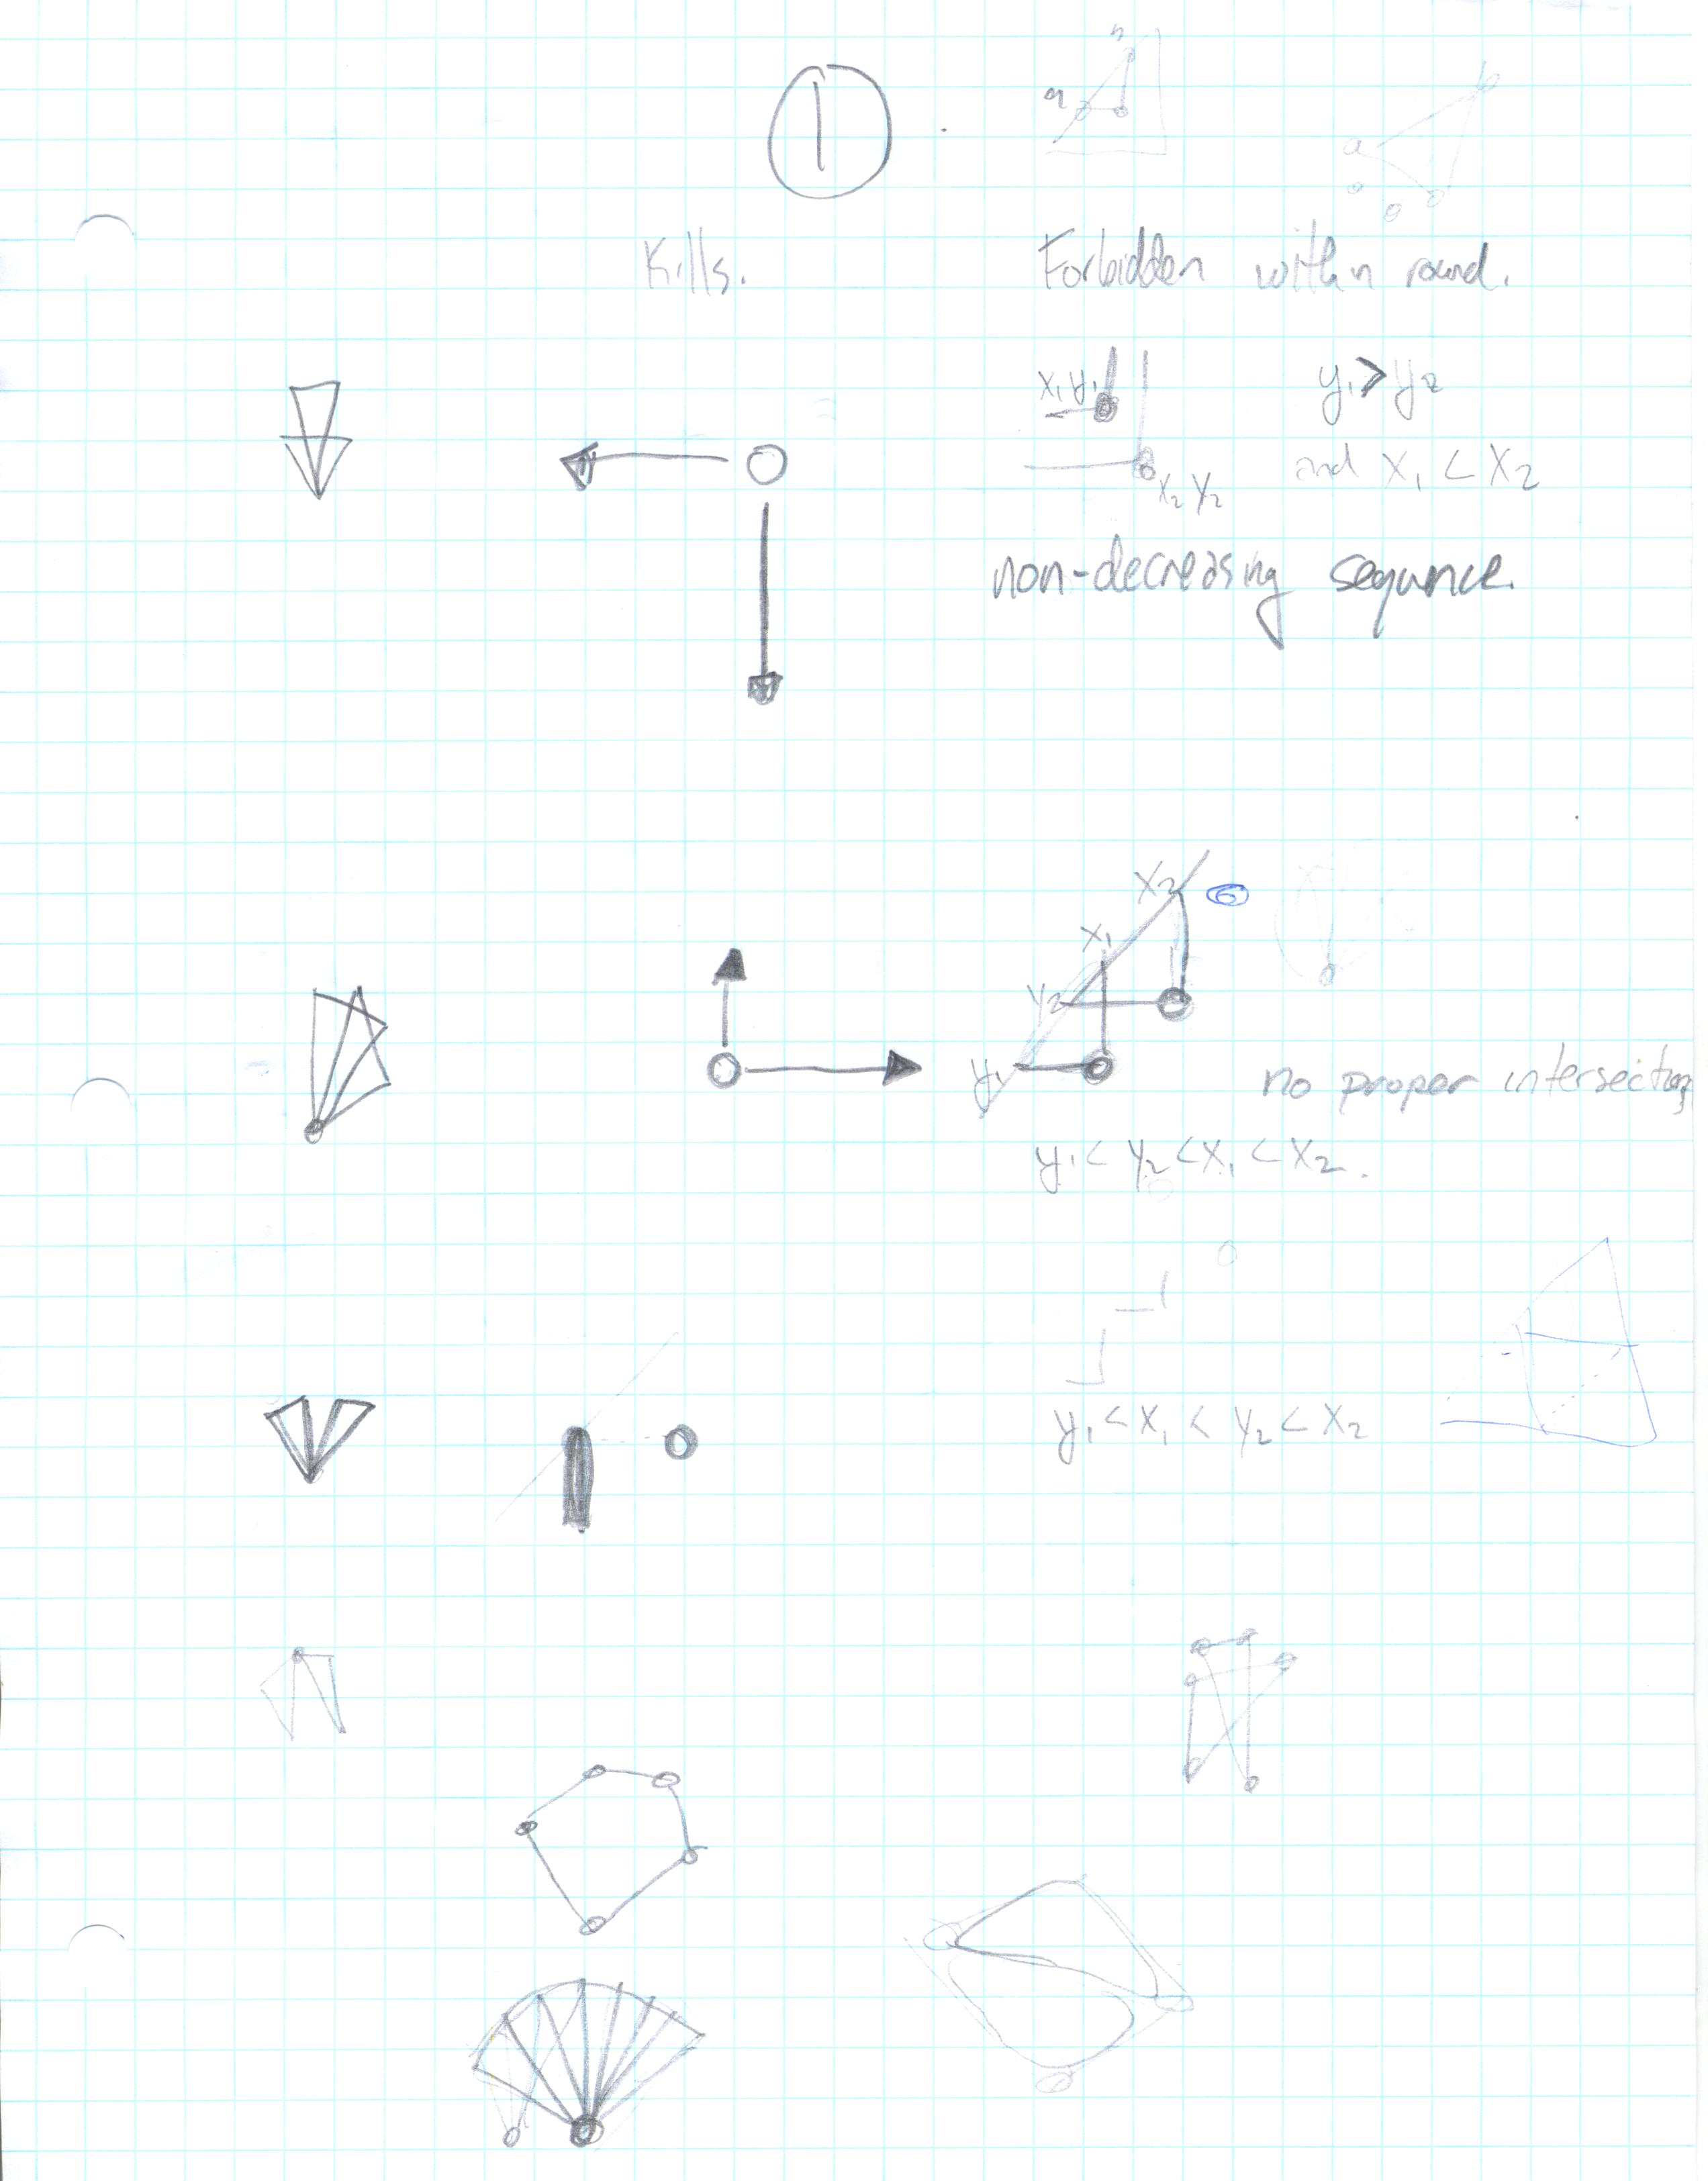 1
b
a
b
a
Kills.
Forbidden within round.
x₁ y₁
y₁ > y₂
and x₁ < x₂
x₂ y₂
non-decreasing sequence.
x₂
x₁
y₂
y₁
no proper intersection
y₁ < y₂ < x₁ < x₂.
y₁ < x₁ < y₂ < x₂